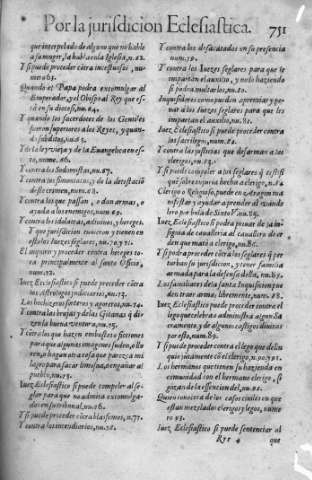 Por la jurisdicion Eclesiastica. 751
que interpelado de alguno que no hable
a su muger, la habla en la Iglesia, n.62.
Y si puede proceder cõtra incestuosos, nu-
mero 63.
Quando el Papa podra excomulgar al
Emperador, y el Obispo al Rey que es-
tà en su distrito, nu.64.
Y quando los sacerdotes de los Gentiles
fueron superiores a los Reyes, y quan-
do subditos, nu.65.
Y de la ley vieja y de la Euangelica en es-
to, nume. 66.
Y contra los Sodomitas, nu.67.
Y contra los simoniacos, y de la detestaciõ
deste crimen, num.68.
Y contra los que passan, o dan armas, o
ayuda a los enemigos, num.69.
Y contra los idolatras, adiuinos, y hereges.
Y que jurisdicion tuuieron y tienen en
estos los Iuezes seglares, nu.70. y 71.
El inquirir y proceder contra hereges to-
ca principalmente al santo Oficio,
num.72.
Iuez Eclesiastico si puede proceder cõtra
los Astrologos judiciarios, nu.73.
Los hechizeros saetores y agoreros, nu.74.
Y contra las brujas y de las Gitanas q̃ di-
zen la buena ventura, nu.75.
Y cõtra los que hazen embustes o ficciones
para que algunas imagenes suden, o llo-
ren, o hagan otra cosa que parezca mi-
lagro para sacar limosna, o engañar al
pueblo, nu.75.
Iuez Eclesiastico si puede compeler al se-
glar para que no admita excomulga-
do en su tribunal, nu.76.
Y si puede proceder cõtra blasfemos, n.77.
Y contra los incendiarios, nu.78.
Y contra los desacatados en su presencia
num.79.
Y contra los Iuezes seglares para que le
impartan el auxilio, y no lo haziendo
si podra multarlos, nu.80.
Inquisidores como pueden apremiar y pe-
nar a los Iuezes seglares para que les
impartan el auxilio, nu.81.
Iuez Eclesiastico si puede proceder contra
los sacrilegos, num.82.
Y contra las justicias que desarman a los
clerigos, nu.83.
Y si puede compeler a los seglares q̃ testifi
quẽ sobre injuria hecha a clerigo, n.84.
Clerigo o Religioso, puede en Aragon ma
nifestar y ayudar a prender al vando
lero por bula de Sixto V. nu.85.
Iuez Eclesiastico si podra priuar de la in-
signia de caualleria al cauallero de or
den que matò a clerigo, nu.86.
Y si podra proceder cõtra los seglares q̃ per
turban su juridicion, y tener familia
armada para la defensa della, nu.87.
Los familiares de la santa Inquisicion pue
den traer armas libremente, num.88.
Iuez Eclesiastico puede proceder contra el
lego que celebra o administra algun Sa
cramento, y de algunos castigos diuinos
por esto, num.89.
Y si puede proceder contra el lego que deslin
quio juntamente cõ el clerigo, n.90. y 91.
Los hermanos que tienen su hazienda en
comunidad con el hermano clerigo, si
gozan de la essencion del, nu.92.
Quien conocera de los casos ciuiles en que
estan mezclados clerigos y legos, nume-
ro 93.
Iuez Eclesiastico si puede sentenciar al
Rrr 4 que